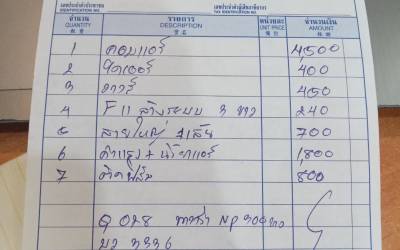 เลขประจำตัวประชาชน เลขประจำตัวผู้เสียภาษีอากร
IDENTIFICATION NO. TAX IDENTIFICATION NO.
จำนวน รายการ หน่วยละ จำนวนเงิน
QUANTITY DESCRIPTION UNIT PRICE AMOUNT
1 คอมแอร์ 4,500
2 ไดเออร์ 400
3 วาวล์ 450
4 F11 ล้างระบบ 3 ขวด 240
5 สายใหญ่ 1 เส้น 700
6 ค่าแรง + น้ำยาแอร์ 1,800
7 ติดฟิล์ม 800
NP 300
3336